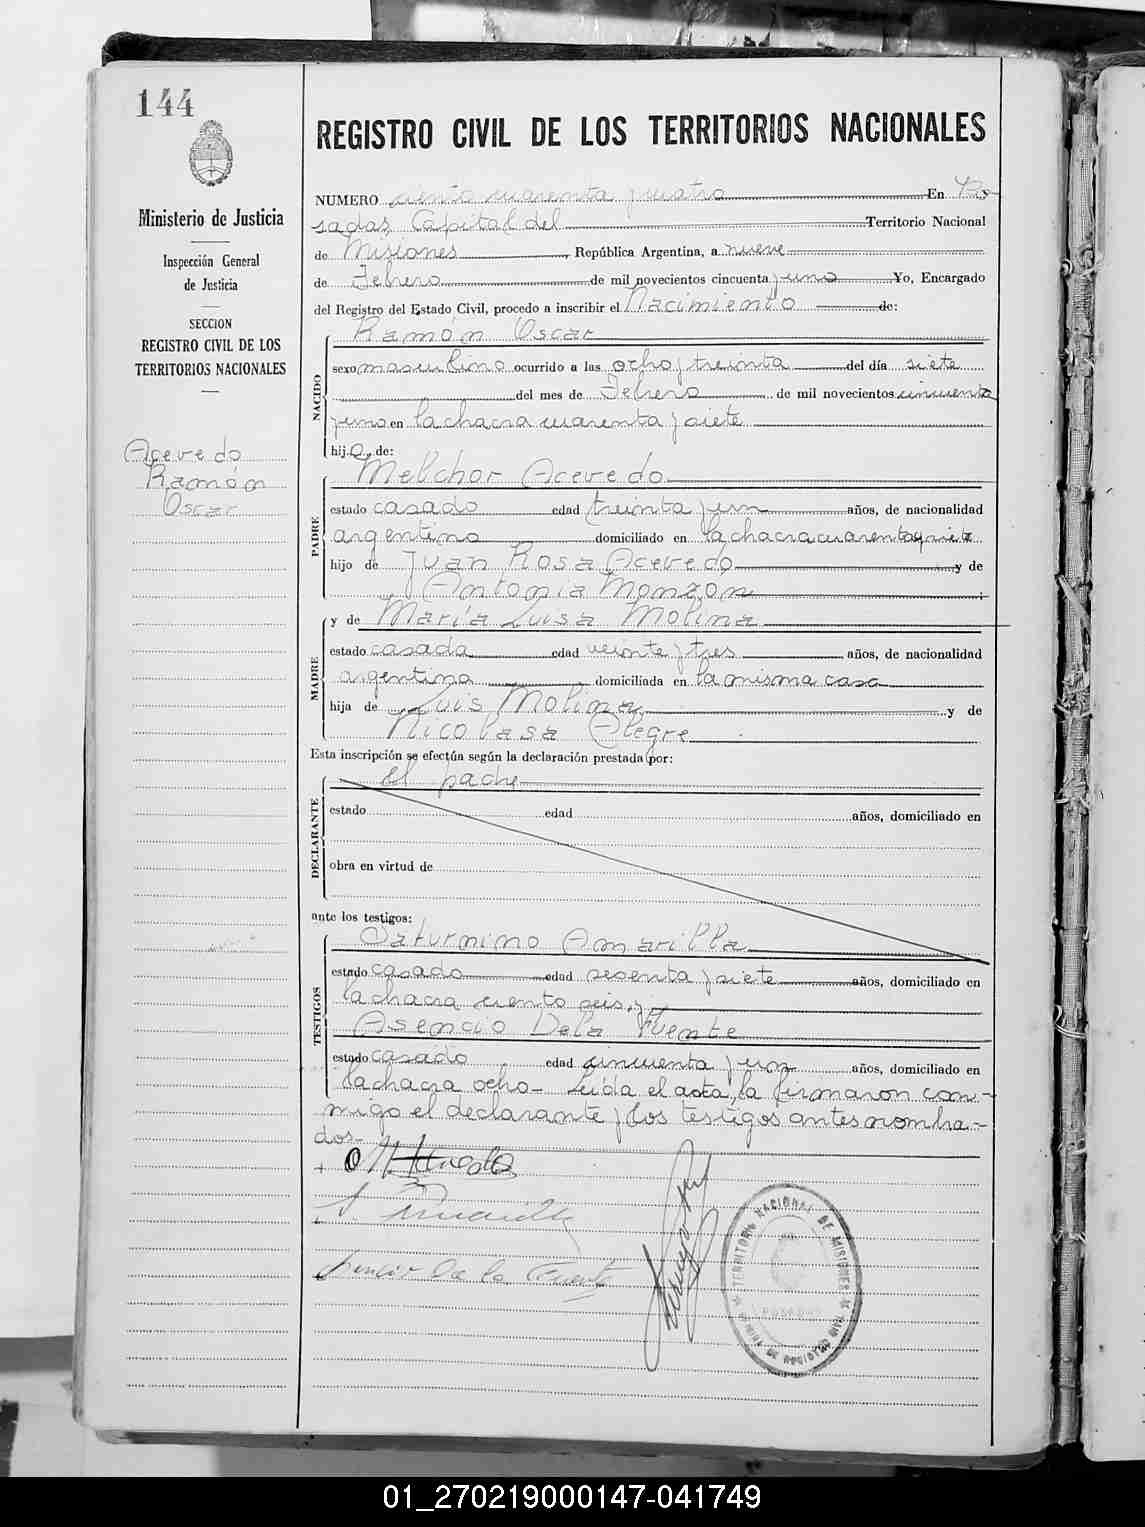 144
Ministerio de Justicia
Inspección General
de Justicia
SECCION
REGISTRO CIVIL DE LOS
TERRITORIOS NACIONALES
Acevedo
Ramón
Oscar
REGISTRO CIVIL DE LOS TERRITORIOS NACIONALES
NUMERO ciento cuarenta y cuatro En Po
sadas Capital del Territorio Nacional
de Misiones, República Argentina, a nueve
de Febrero de mil novecientos cincuenta y uno Yo, Encargado
del Registro del Estado Civil, procedo a inscribir el Nacimiento de:
NACIDO
Ramón Oscar
sexo masculino ocurrido a las ocho y treinta del día siete
del mes de Febrero de mil novecientos cincuenta
y uno en la chacra cuarenta y siete
hijo de:
PADRE
Melchor Acevedo
estado casado edad treinta y un años, de nacionalidad
argentino domiciliado en la chacra cuarenta y siete
hijo de Juan Rosa Acevedo y de
Antonia Monzon
MADRE
y de María Luisa Molina
estado casada edad veinte y tres años, de nacionalidad
argentina domiciliada en la misma casa
hija de Luis Molina y de
Nicolasa Alegre
Esta inscripción se efectúa según la declaración prestada por:
DECLARANTE
el padre
estado edad años, domiciliado en
obra en virtud de
ante los testigos:
TESTIGOS
Saturnino Amarilla
estado casado edad sesenta y siete años, domiciliado en
la chacra ciento seis, y
Asencio De la Fuente
estado casado edad cincuenta y un años, domiciliado en
la chacra ocho - Leída el acta, la firmaron con-
migo el declarante y los testigos antes nombra-
dos-
M. Acevedo
S. Amarilla
Asencio De la Fuente
TERRITORIO NACIONAL DE MISIONES
POSADAS
01_270219000147-041749